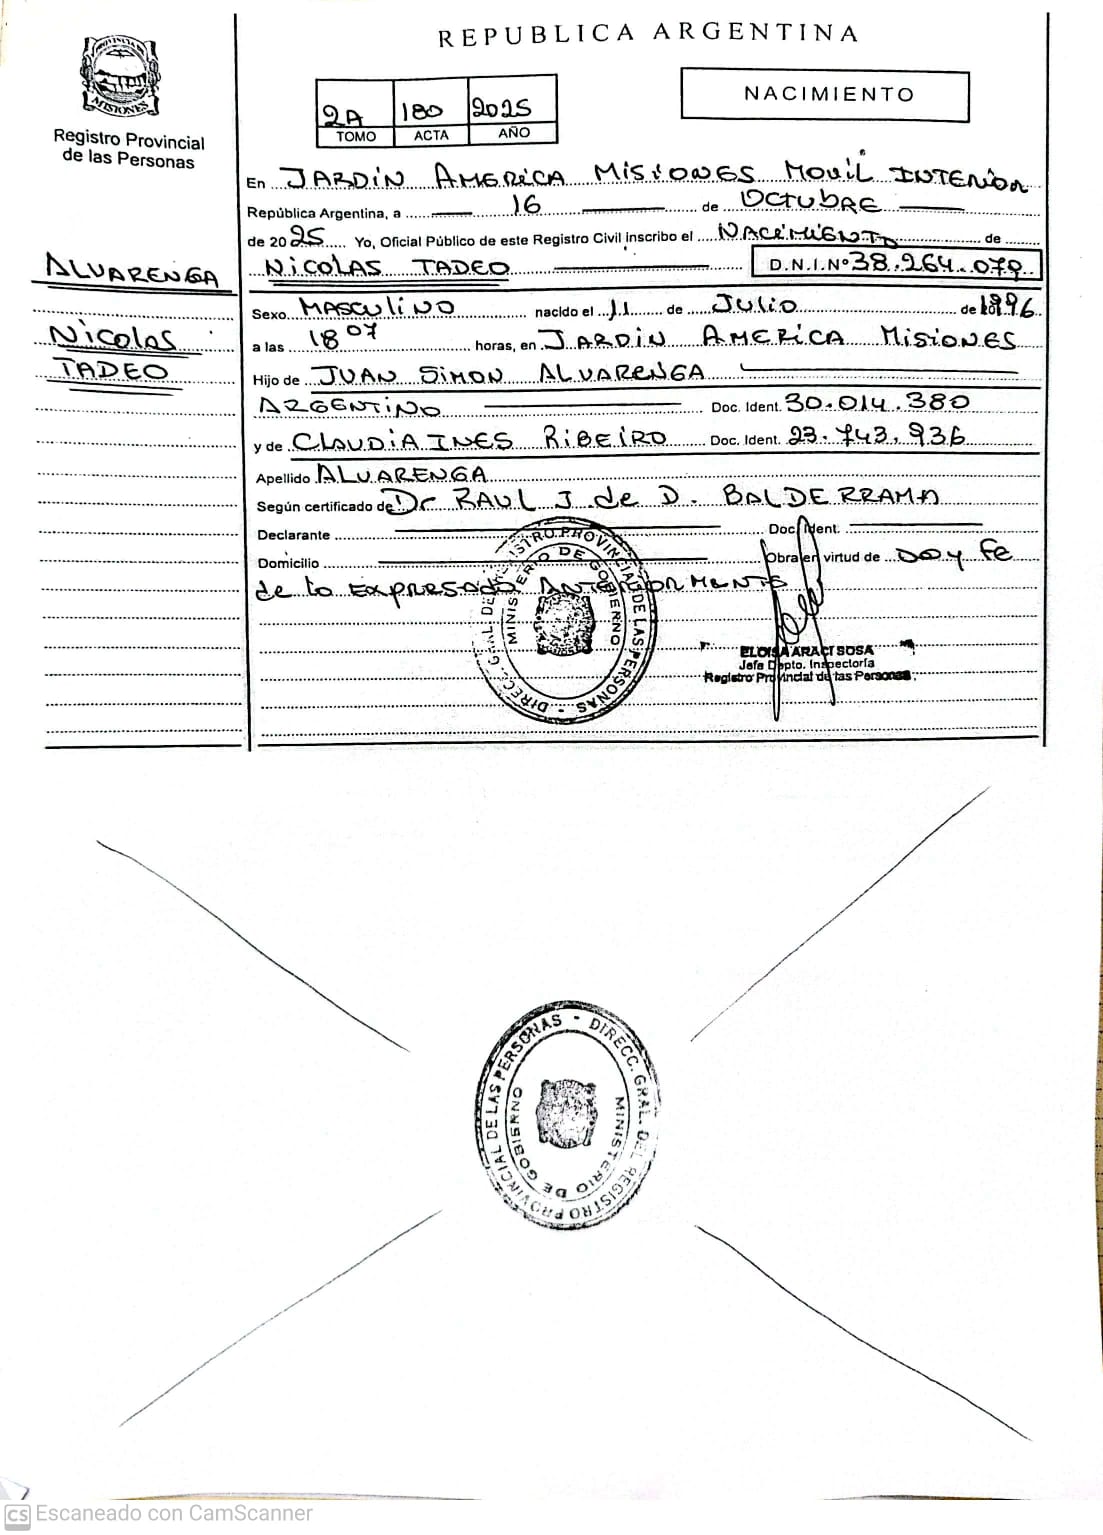 REPUBLICA ARGENTINA
PROVINCIA DE MISIONES
Registro Provincial
de las Personas
2A 180 2025
TOMO ACTA AÑO
NACIMIENTO
En JARDIN AMERICA MISIONES MOVIL INTERIOR
República Argentina, a 16 de OCTUBRE
de 2025 Yo, Oficial Público de este Registro Civil inscribo el NACIMIENTO de
ALVARENGA
NICOLAS TADEO D.N.I.Nº 38.264.079
Sexo MASCULINO nacido el 11 de JULIO de 1996
Nicolas
TADEO
a las 18 07 horas, en JARDIN AMERICA MISIONES
Hijo de JUAN SIMON ALVARENGA
ARGENTINO Doc. Ident. 30.014.380
y de CLAUDIA INES RIBEIRO Doc. Ident. 23.743.936
Apellido ALVARENGA
Según certificado de Dr RAUL J. de D. BALDERRAMA
Declarante Doc. Ident.
Domicilio Obra en virtud de DOY Fe
de lo EXPRESADO ANTERIORMENTE
DIRECC. GRAL. DEL REGISTRO PROVINCIAL DE LAS PERSONAS
MINISTERIO DE GOBIERNO
ELOISA ARACI SOSA
Jefa Dpto. Inspectoría
Registro Provincial de las Personas
DIRECC. GRAL. DEL REGISTRO PROVINCIAL DE LAS PERSONAS
MINISTERIO DE GOBIERNO
CS Escaneado con CamScanner